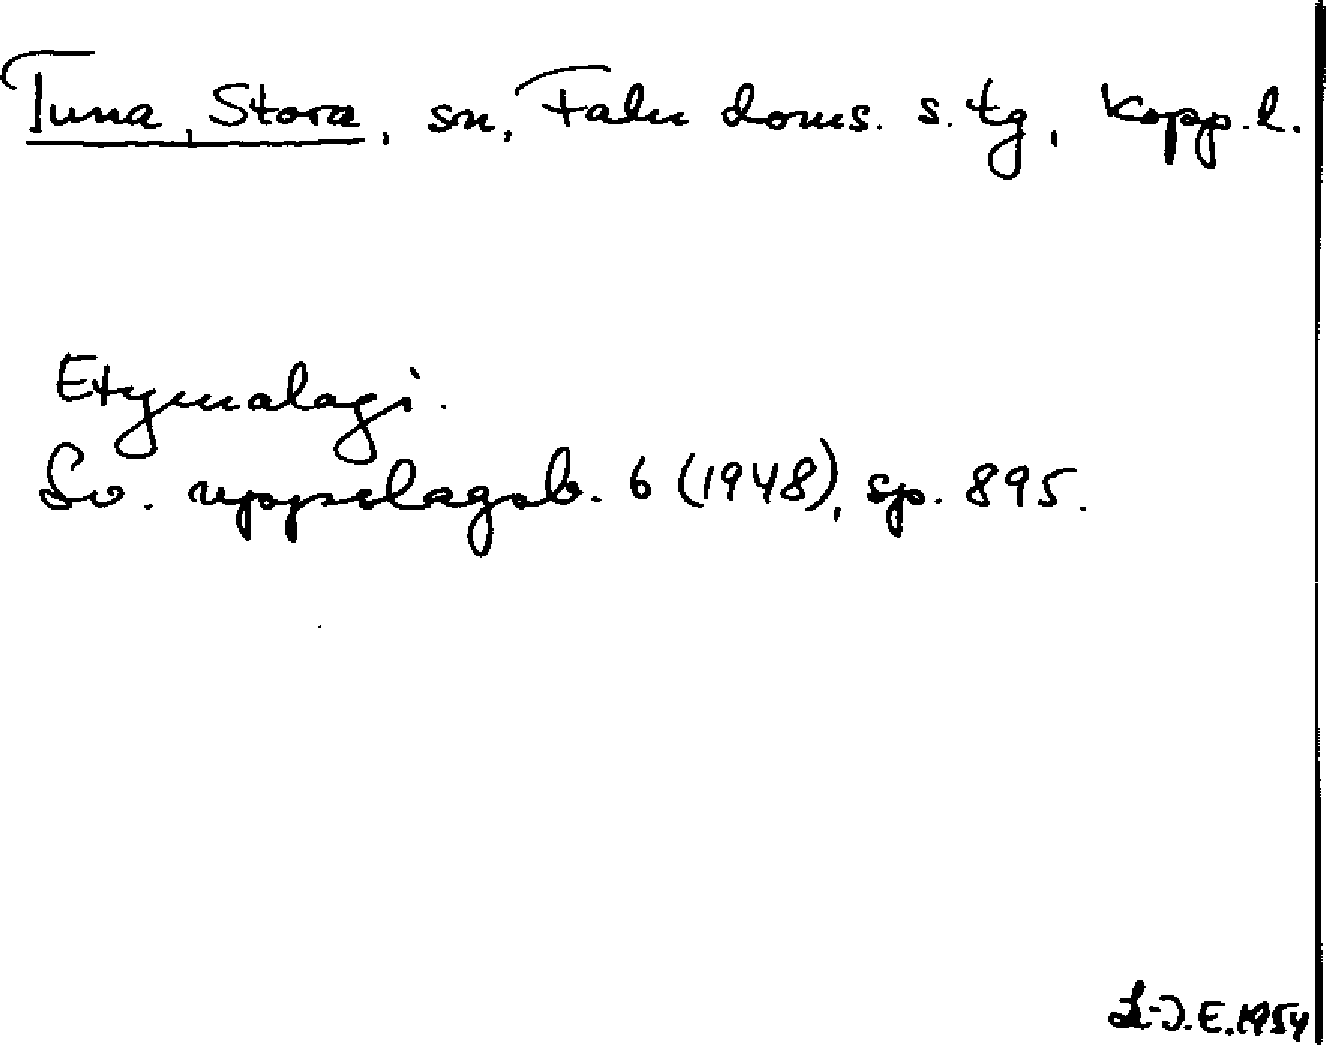 Tuna, Stora, sn, Falu doms. s. tg, Kopp. l.
Etymologi.
Sv. uppslagsb. 6 (1948), sp. 895.
L-J.E.1954